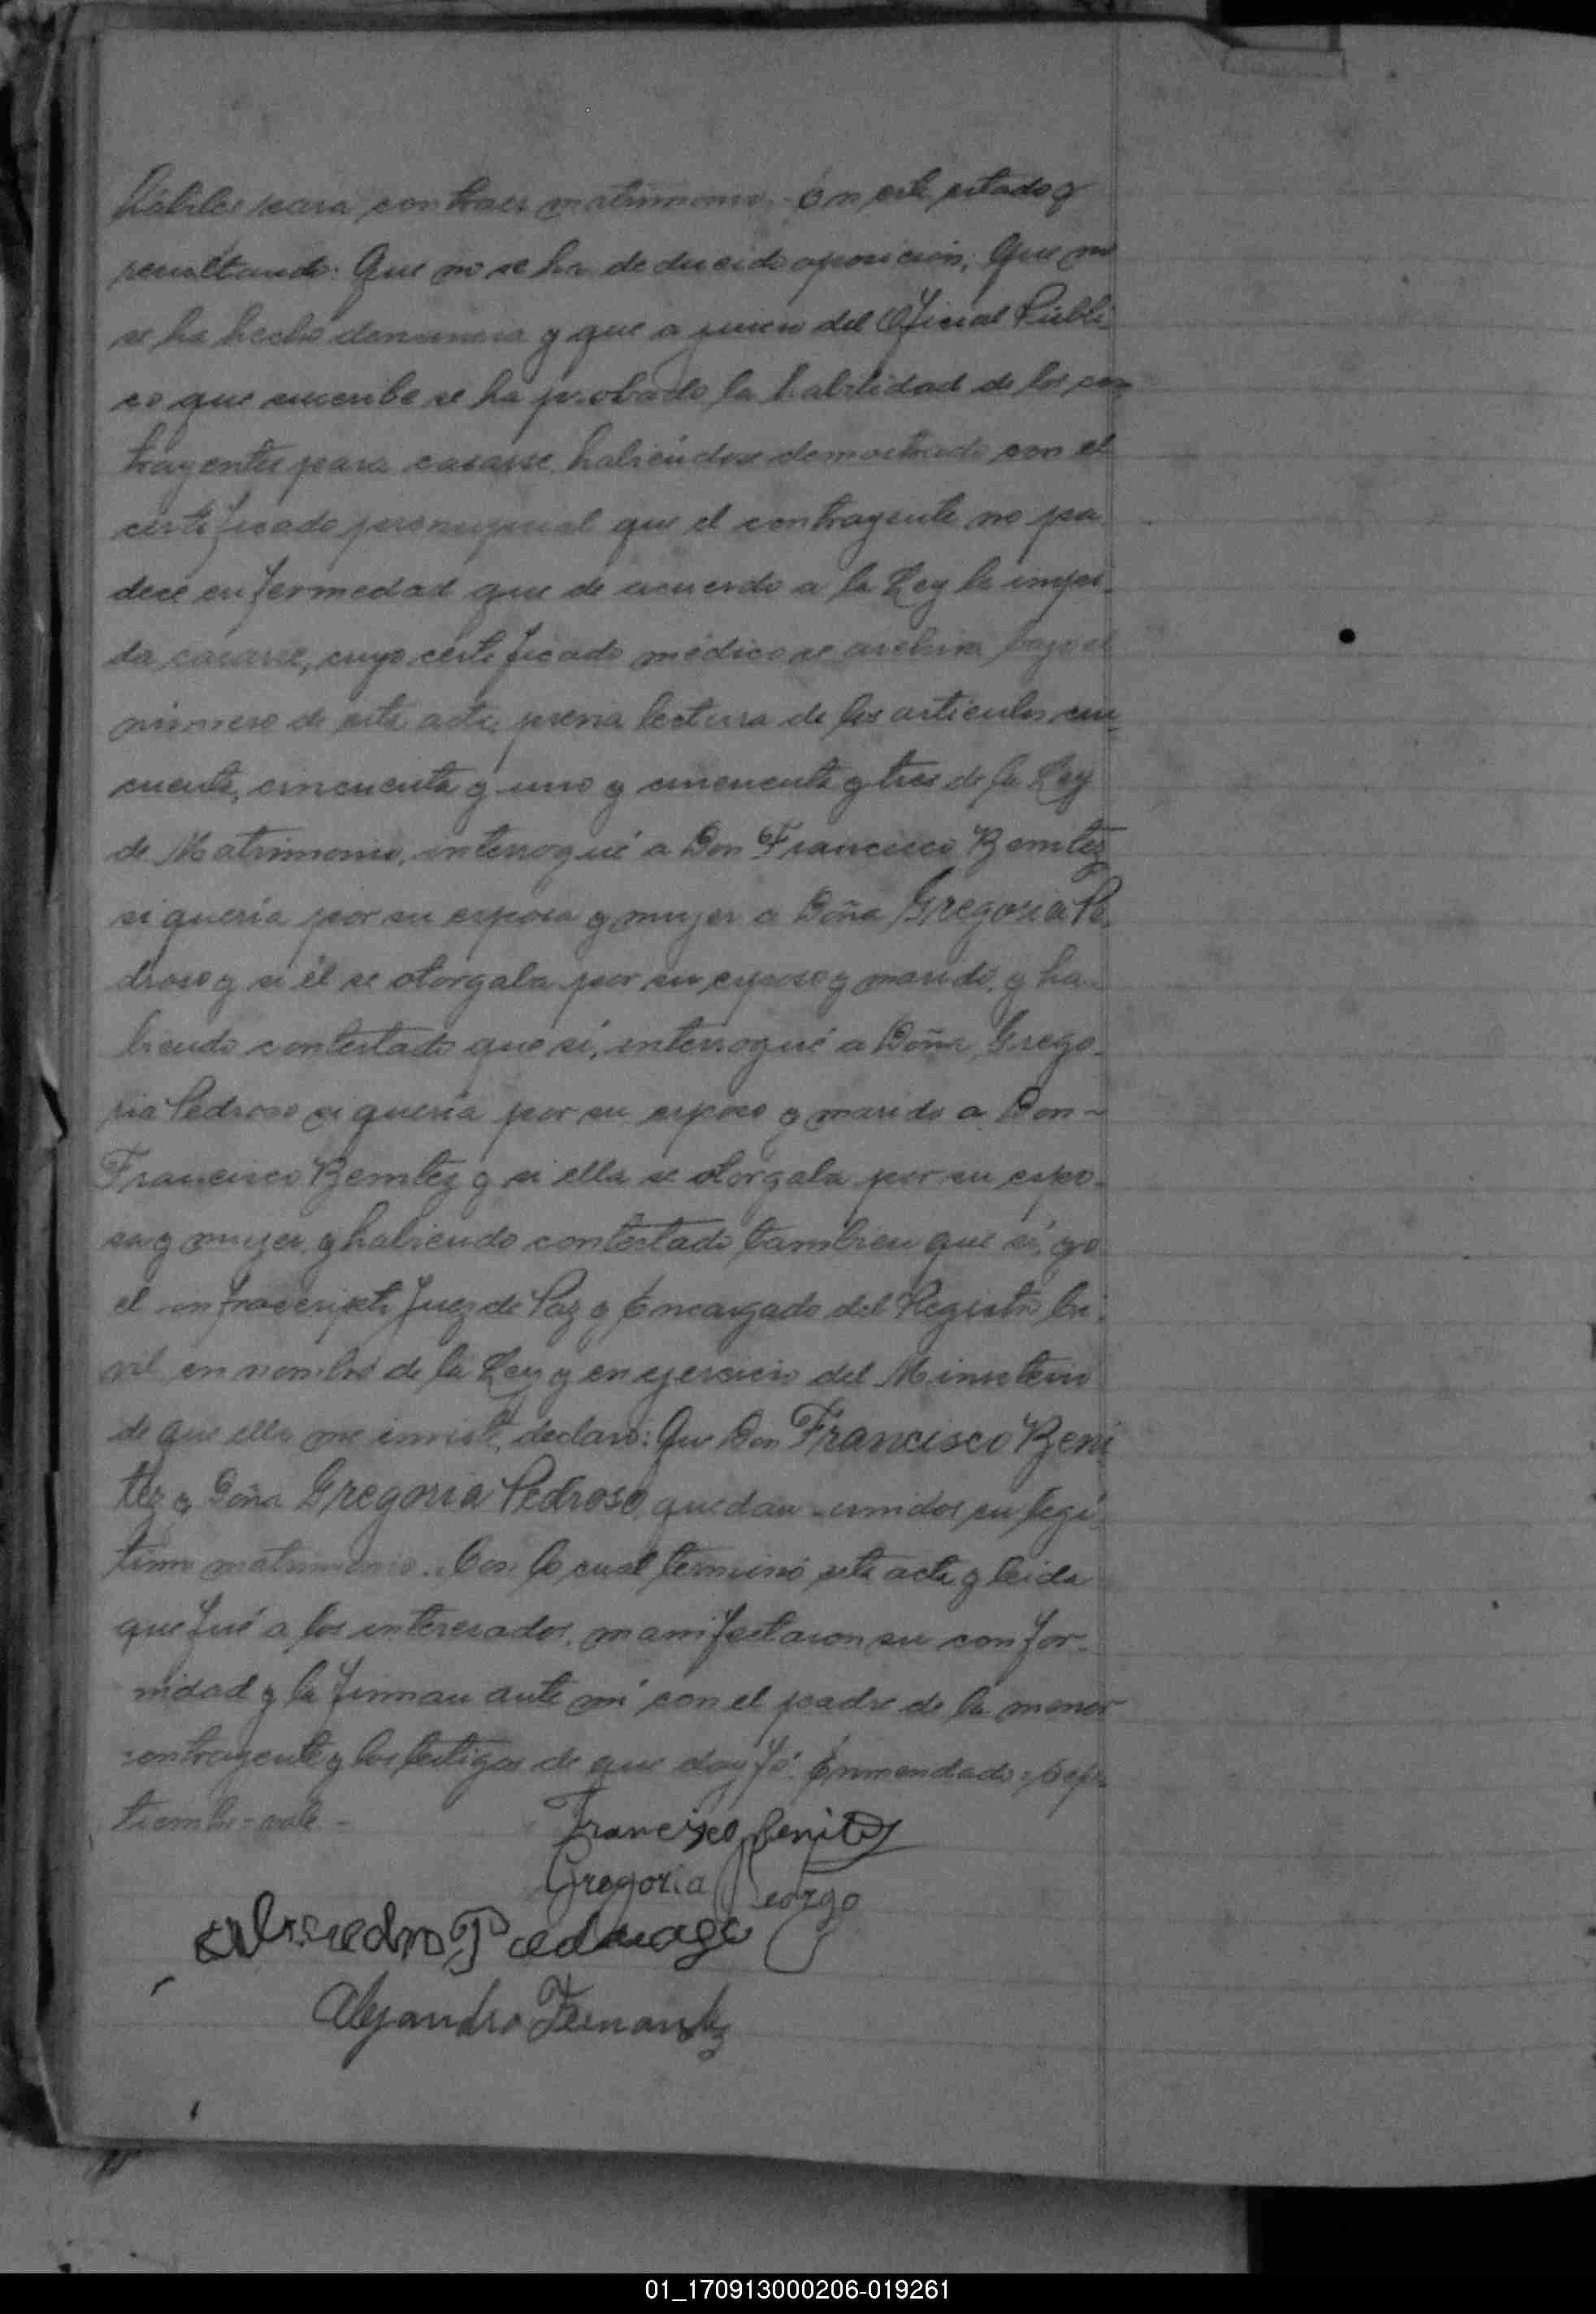 hábiles para contraer matrimonio.- En este estado y
resultando: Que no se ha deducido oposición; Que no
se ha hecho denuncia y que a juicio del Oficial Públi
co que suscribe se ha probado la habilidad de los con
trayentes para casarse, habiéndose demostrado con el
certificado prenupcial que el contrayente no pa
dece enfermedad que de acuerdo a la Ley le impi-
da casarse, cuyo certificado médico se archiva bajo el
número de esta acta, previa lectura de los artículos cin
cuenta, cincuenta y uno y cincuenta y tres de la Ley
de Matrimonio, interrogué a Don Francisco Benitez
si quería por su esposa y mujer a Doña Gregoria Pe
droso y si él se otorgaba por su esposo y marido, y ha-
biendo contestado que sí, interrogué a Doña Grego-
ria Pedroso si quería por su esposo y marido a Don -
Francisco Benitez y si ella se otorgaba por su espo-
sa y mujer, y habiendo contestado tambien que sí, yo
el infrascripto Juez de Paz y Encargado del Registro Ci-
vil en nombre de la Ley y en ejercicio del Ministerio
de que ella me inviste, declaro: Que Don Francisco Beni
tez y Doña Gregoria Pedroso, quedan unidos en legí-
timo matrimonio.- Con lo cual terminó esta acta y leida
que fué a los interesados, manifestaron su confor-
midad y la firman ante mí con el padre de la menor
contrayente y los testigos de que doy fé. Enmendado: sep
tiembre = vale -
Francisco Benitez
Gregoria
Alejandro Fernandez
01_170913000206-019261